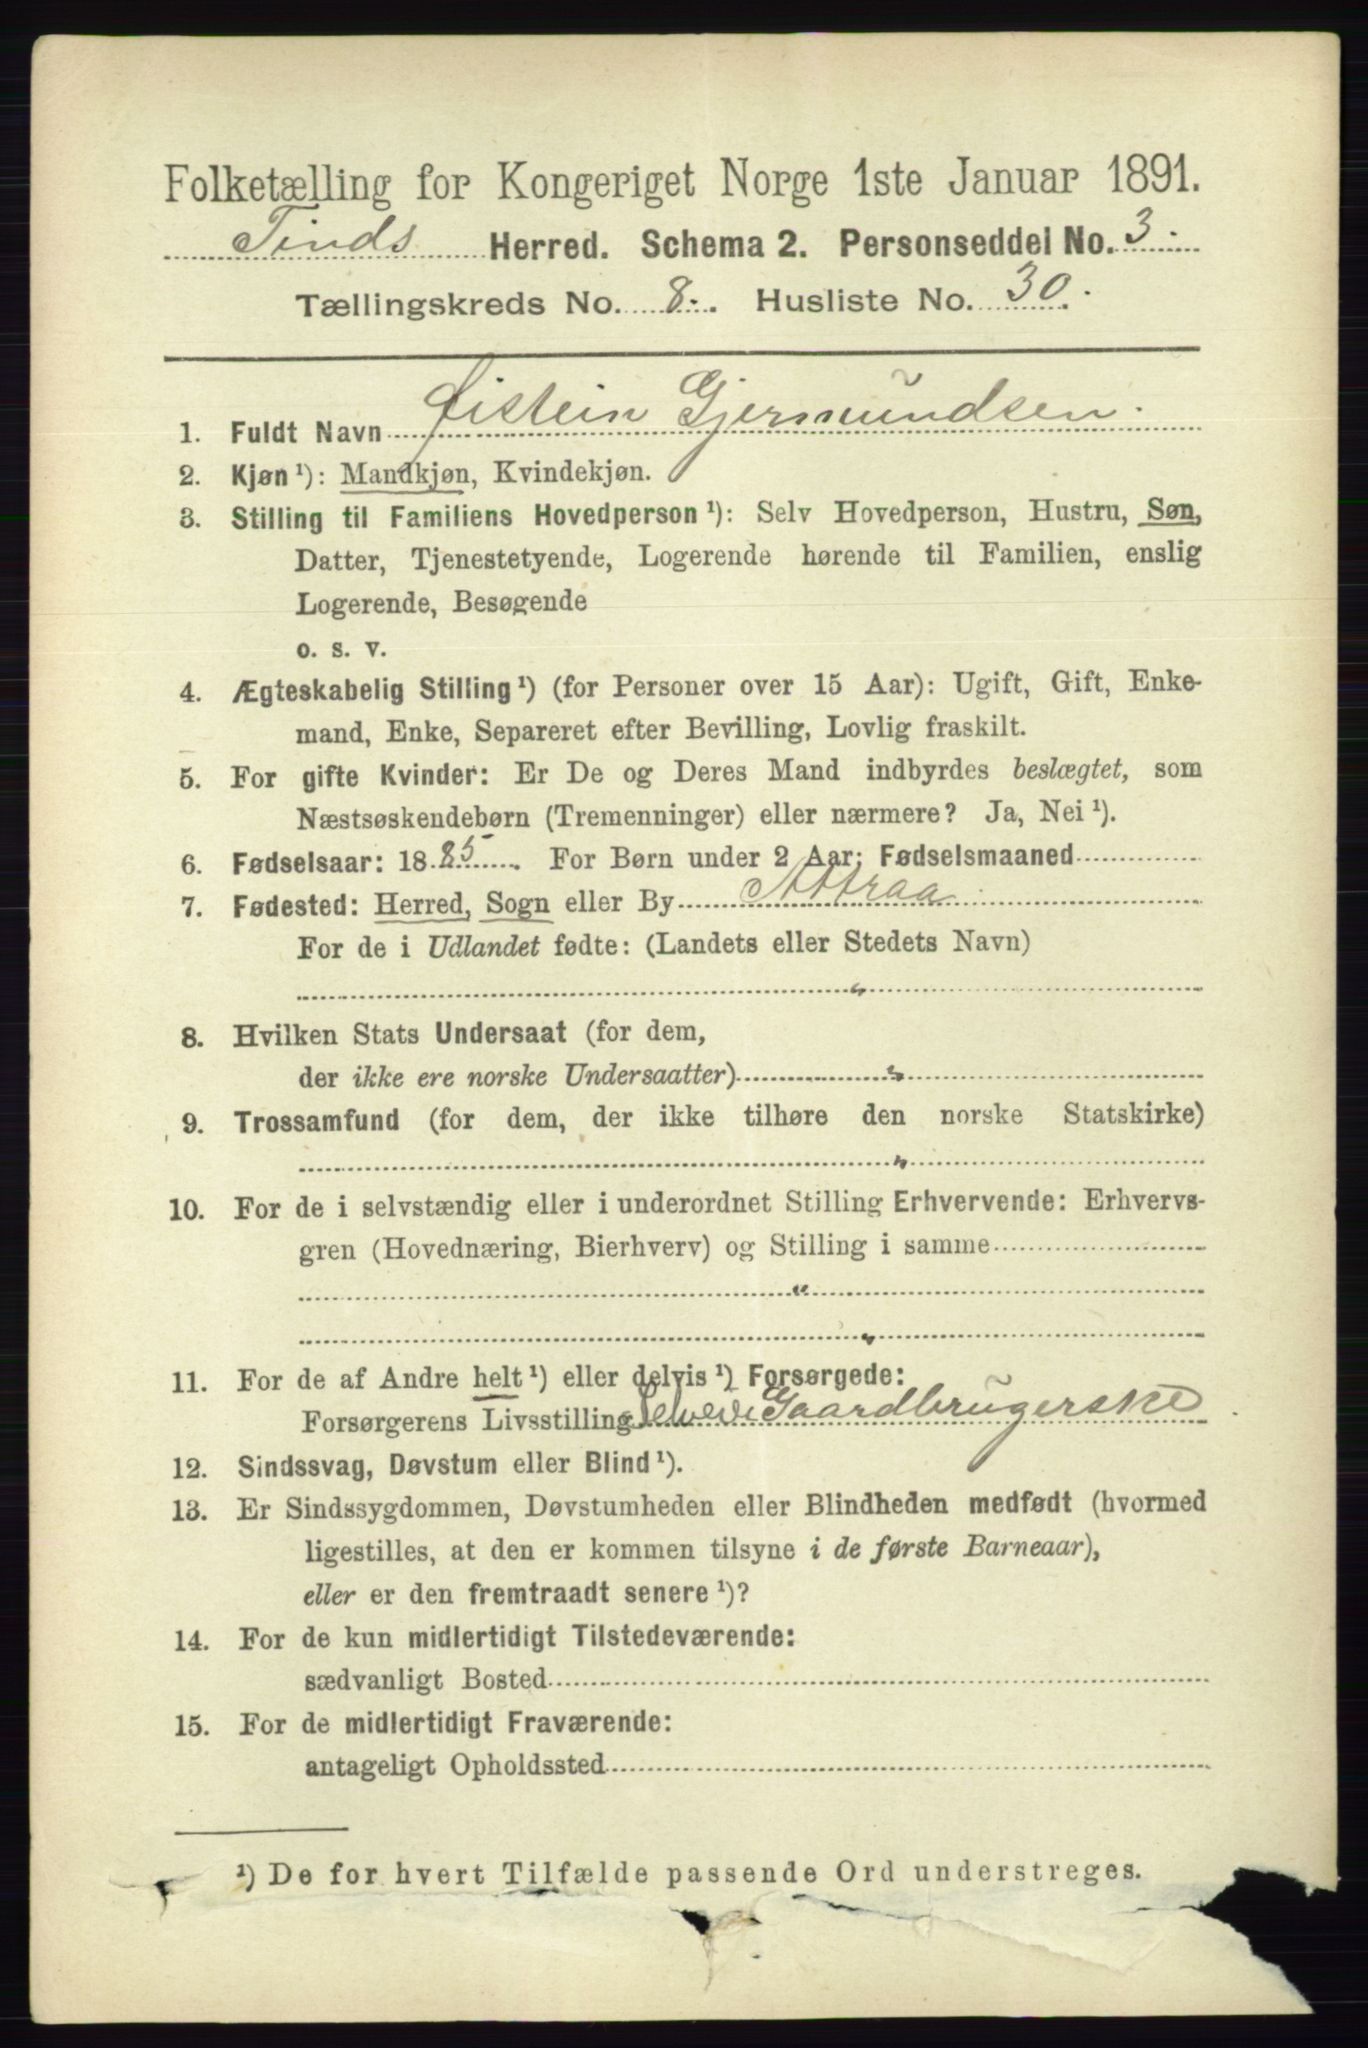 Folketælling for Kongeriget Norge 1ste Januar 1891.
Tinds Herred. Schema 2. Personseddel No. 3.
Tællingskreds No. 8. Husliste No. 30.
1. Fuldt Navn Øistein Gjermundsen.
2. Kjøn ¹): Mandkjøn, Kvindekjøn.
3. Stilling til Familiens Hovedperson ¹): Selv Hovedperson, Hustru, Søn,
Datter, Tjenestetyende, Logerende hørende til Familien, enslig
Logerende, Besøgende
o. s. v.
4. Ægteskabelig Stilling ¹) (for Personer over 15 Aar): Ugift, Gift, Enke-
mand, Enke, Separeret efter Bevilling, Lovlig fraskilt.
5. For gifte Kvinder: Er De og Deres Mand indbyrdes beslægtet, som
Næstsøskendebørn (Tremenninger) eller nærmere? Ja, Nei ¹).
6. Fødselsaar: 1885. For Børn under 2 Aar: Fødselsmaaned
7. Fødested: Herred, Sogn eller By Attraa
For de i Udlandet fødte: (Landets eller Stedets Navn)
"
8. Hvilken Stats Undersaat (for dem,
der ikke ere norske Undersaatter) "
9. Trossamfund (for dem, der ikke tilhøre den norske Statskirke)
"
10. For de i selvstændig eller i underordnet Stilling Erhvervende: Erhvervs-
gren (Hovednæring, Bierhverv) og Stilling i samme
"
"
11. For de af Andre helt ¹) eller delvis ¹) Forsørgede:
Forsørgerens Livsstilling Selveie Gaardbrugerske
12. Sindssvag, Døvstum eller Blind ¹).
13. Er Sindssygdommen, Døvstumheden eller Blindheden medfødt (hvormed
ligestilles, at den er kommen tilsyne i de første Barneaar),
eller er den fremtraadt senere ¹)?
14. For de kun midlertidigt Tilstedeværende:
sædvanligt Bosted
15. For de midlertidigt Fraværende:
antageligt Opholdssted
¹) De for hvert Tilfælde passende Ord understreges.